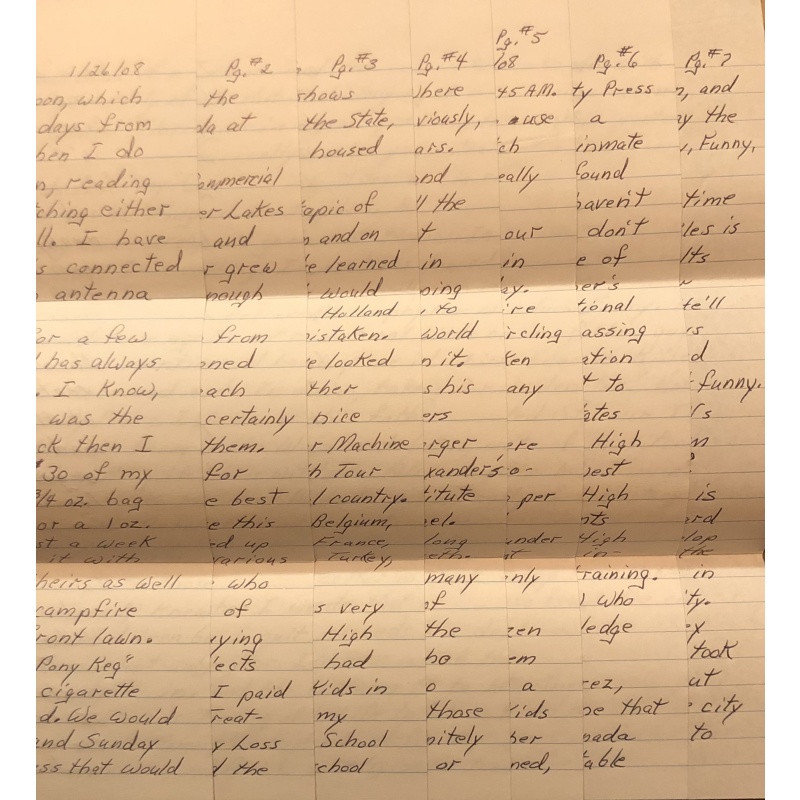 1/26/08 Pg.#2 Pg.#3 Pg.#4 Pg.#5 /08 Pg.#6 Pg.#7
on, which the shows here 45 AM. ty Press n, and
days from da at the State, viously, use a by the
hen I do housed ars. ch inmate , Funny,
n, reading ommercial nd eally found
ching either er Lakes apic of ll the haven't time
ll. I have and n and on t our don't les is
s connected r grew e learned in in e of Its
antenna nough would oing ay. er's
Holland , to ire tional te'll
or a few from istaken. world ircling assing is
has always ned e looked n it. ten ation d
. I Know, ach ther s his any t to funny.
was the certainly nice ers ates 's
ck then I them. r Machine erger ere High n
30 of my for h Tour xander's o- est ?
3/4 oz. bag e best l country. titute per High is
or a 1 oz. e this Belgium, el. nts rd
st a week ed up France, long under High lop
it with various Turkey, eth. t in- the
heirs as well who many nly raining. in
campfire of s very of ) who ty.
front lawn. ying High the zen ledge ey
Pony Keg" ects had ho em took
cigarette I paid kids in o a ez, ut
d. We would Treat- my those ids be that city
nd Sunday y Loss School nitely her nada to
ss that would d the chool or ned, able